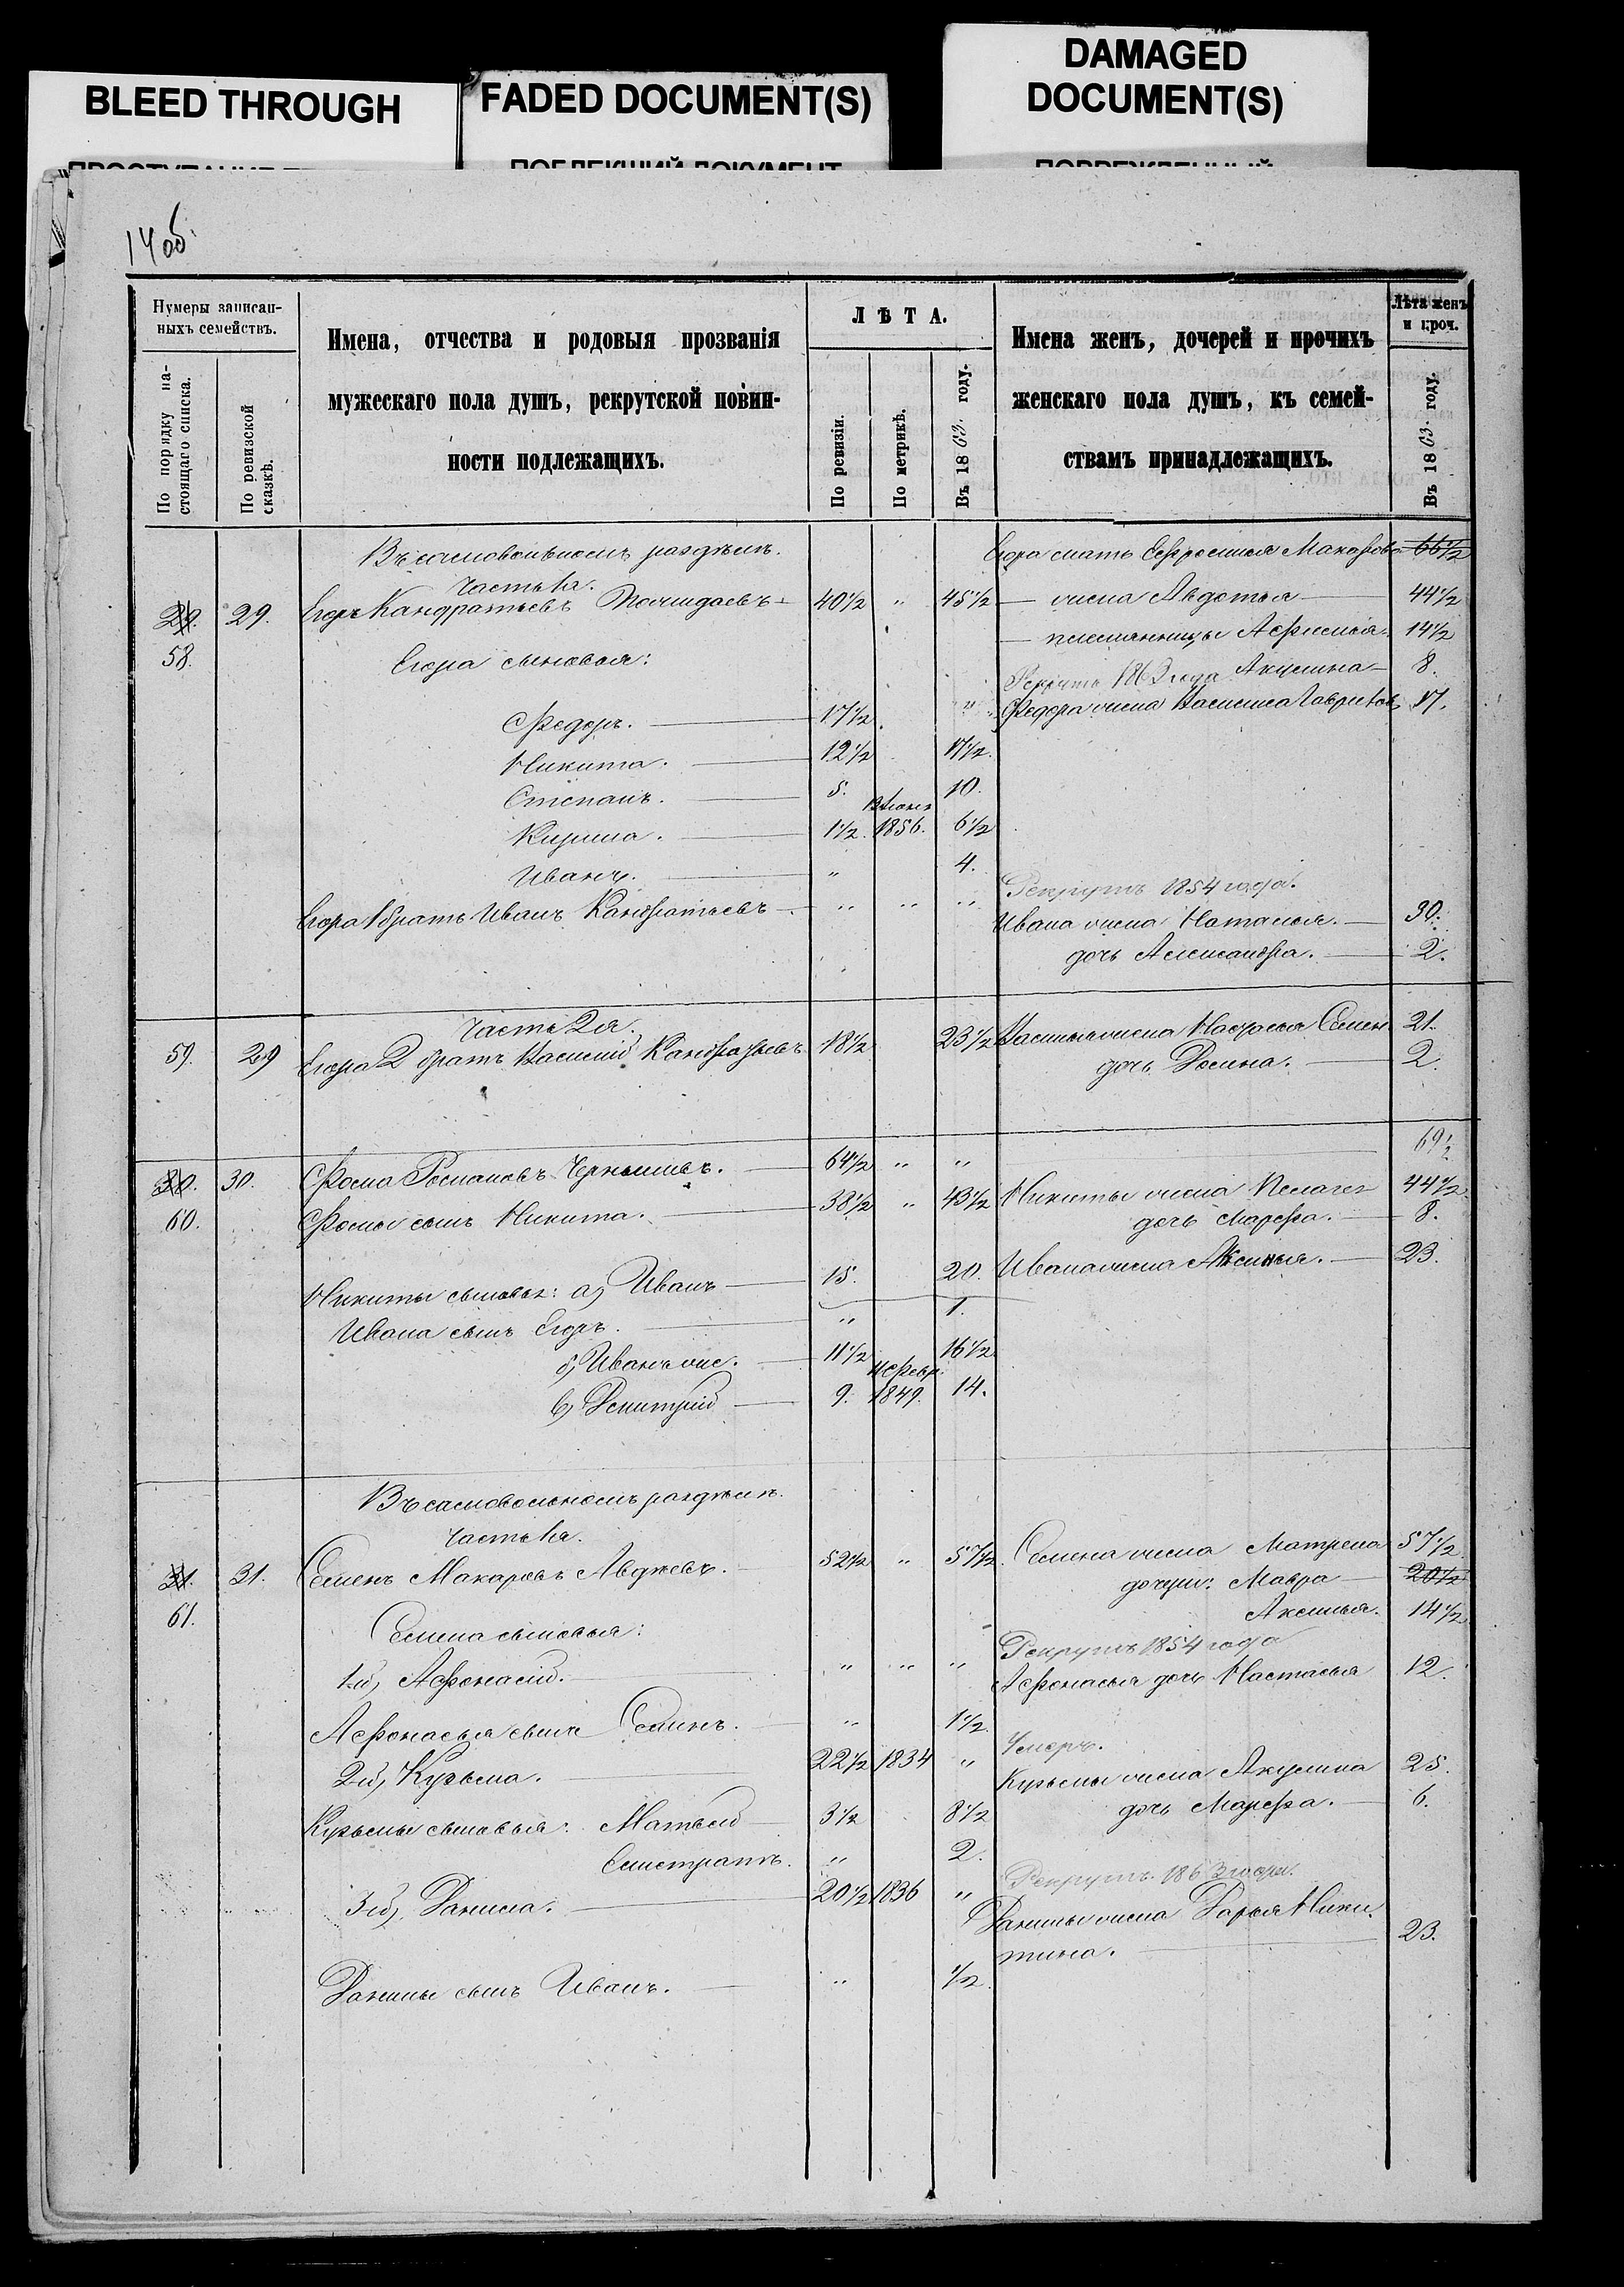 BLEED THROUGH
FADED DOCUMENT(S)
DAMAGED
DOCUMENT(S)
14 об.
Нумеры записан-
ныхъ семействъ.
По порядку на-
стоящаго списка.
По ревизской
сказкѣ.
Имена, отчества и родовыя прозванія
мужескаго пола душъ, рекрутской повин-
ности подлежащихъ.
ЛѢТА.
По ревизіи.
По метрикѣ.
Въ 1863 году.
Имена женъ, дочерей и прочихъ
женскаго пола душъ, къ семей-
ствамъ принадлежащихъ.
Лѣта женъ
и проч.
Въ 1863 году.
Въ самовольномъ раздѣлѣ. Егора мать Ефросинья Макарова 66 1/2
Часть 1я.
29. 29. Егоръ Кандратьевъ 40 1/2 " 45 1/2 — жена Авдотья — 44 1/2
58. — племянницы Афимья 14 1/2
Егора сыновья: Рекрутъ 1863 года Акулина — 8.
Федоръ. — 17 1/2 " Федора жена Василиса Гаврилов. 17.
Никита. — 12 1/2 17 1/2.
Степанъ. — 5. 10.
Кирила. — 1 1/2. 1856. 6 1/2
Иванъ. — " 4.
Рекрутъ 1854 года.
Егора 1 братъ Иванъ Кандратьевъ — " " " Ивана жена Наталья. — 30.
дочь Александра. — 2.
Часть 2я.
59. 29 Егора 2 братъ Василій Кандратьевъ 18 1/2 23 1/2 Василья жена Настасья Семен. 21.
дочь Домна. — 2.
30. 30. Фома Романовъ Чернышевъ. — 64 1/2 " " 69 1/2
60. Фомы сынъ Никита. — 38 1/2 " 43 1/2 Никиты жена Пелагея 44 1/2
дочь Марфа. — 8.
Никиты сыновья: а) Иванъ — 15. 20. Ивана жена Аксинья. — 23.
Ивана сынъ Егоръ. — " 1.
б) Иванъ же. — 11 1/2 16 1/2
в) Дмитрій — 9. 1849. 14.
Въ самовольномъ раздѣлѣ.
Часть 1я.
31. 31. Семенъ Макаровъ Авдѣевъ. — 52 1/2 " 57 1/2. Семена жена Матрена 57 1/2
61. дочери: Мавра — 20 1/2
Аксинья. 14 1/2
Семена сыновья:
Рекрутъ 1854 года
1й, Афонасій. — " " " Афонасья дочь Настасья 12.
Афонасья сынъ Семенъ. — " 1 1/2.
Умеръ.
2й, Кузьма. 22 1/2 1834 " Кузьмы жена Акулина 25.
дочь Марфа. — 6.
Кузьмы сыновья: Матвей — 3 1/2 8 1/2
Елистратъ. " 2.
Рекрутъ 1863 года.
3й, Данила. — 20 1/2 1836 " Данилы жена Дарья Ники-
тина. — 23.
Данилы сынъ Иванъ. — " 1/2